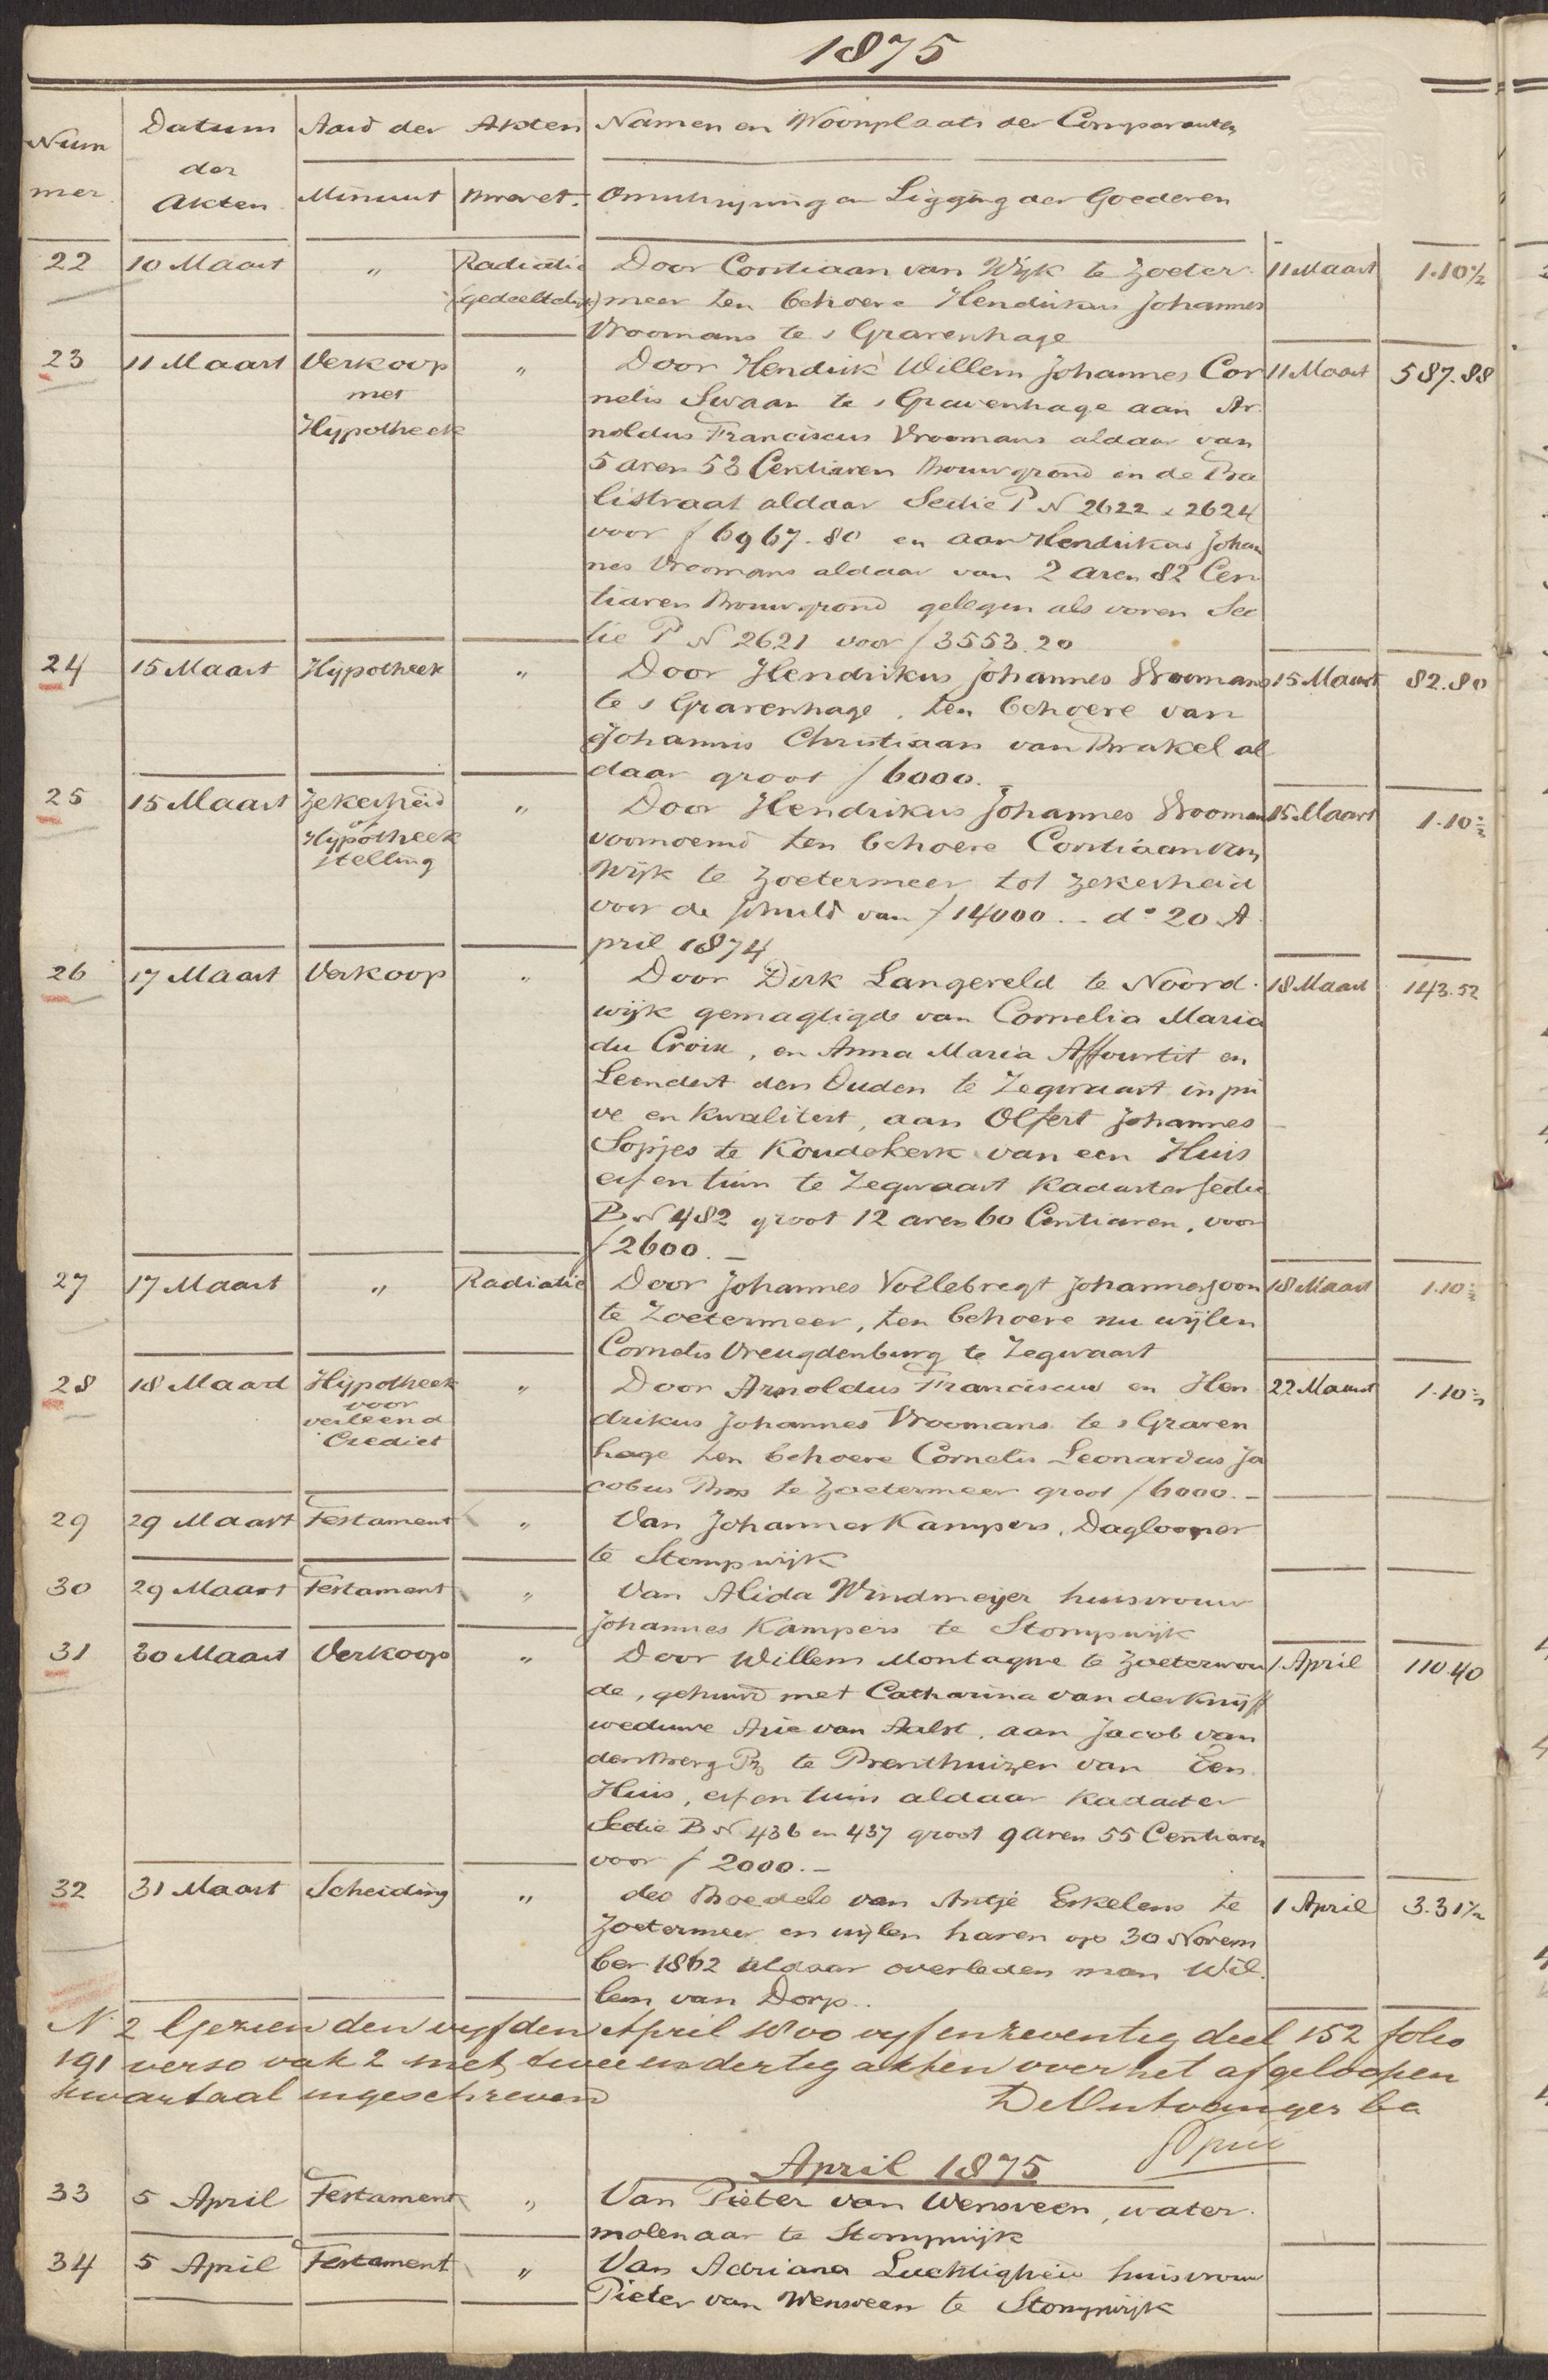 1875
Nummer Datum der Akten Aard der Akten Namen en Woonplaats der Comparanten
Minuut Brevet. Omschrijving en Ligging der Goederen
22 10 Maart " Radiatie Door Corstiaan van Wijk te Zoeter 11 Maart 1.10½
(gedeeltelijk) meer ten behoeve Hendrikus Johannes
Vroomans te s Gravenhage
23 11 Maart Verkoop " Door Hendrik Willem Johannes Cor 11 Maart 587.88
met nelis Swaan te s Gravenhage aan Ar
Hypotheek noldus Franciscus Vroomans aldaar van
5 aren 53 Centiaren Bouwgrond in de Ba
listraat aldaar Sectie P N 2622 & 2624
voor f 6967.80 en aan Hendrikus Johan
nes Vroomans aldaar van 2 aren 82 Cen
tiaren Bouwgrond gelegen als voren Sec
tie P N 2621 voor f 3553.20
24 15 Maart Hypotheek " Door Hendrikus Johannes Vroomans 15 Maart 82.80
te s Gravenhage, ten behoeve van
Johannis Christiaan van Brakel al
daar groot f 6000.-
25 15 Maart Zekerheid " Door Hendrikus Johannes Vrooman 15 Maart 1.10½
of Hypotheek voornoemd ten behoeve Corstiaan van
stelling Wijk te Zoetermeer tot zekerheid
voor de schuld van f 14000.- do 20 A
pril 1874
26 17 Maart Verkoop " Door Dirk Langeveld te Noord 18 Maart 143.52
wijk gemagtigde van Cornelia Maria
du Croix, en Anna Maria Affourtit en
Leendert den Ouden te Zegwaart in pri
ve en kwaliteit, aan Olfert Johannes
Sopjes te Koudekerk van een Huis
erf en tuin te Zegwaart Kadaster sectie
B N 482 groot 12 aren 60 Centiaren, voor
f 2600.-
27 17 Maart " Radiatie Door Johannes Vollebregt Johanneszoon 18 Maart 1.10½
te Zoetermeer, ten behoeve nu wijlen
Cornelis Vreugdenburg te Zegwaart
28 18 Maart Hypotheek " Door Arnoldus Franciscus en Hen 22 Maart 1.10½
voor drikus Johannes Vroomans te s Graven
verleend hage ten behoeve Cornelis Leonardus Ja
Crediet cobus Bos te Zoetermeer groot f 6000.-
29 29 Maart Testament " Van Johannes Kampers, Daglooner
te Stompwijk
30 29 Maart Testament " Van Alida Windmeijer huisvrouw
Johannes Kampers te Stompwijk
31 30 Maart Verkoop " Door Willem Montagne te Zoeterwou 1 April 110.40
de, gehuwd met Catharina van der Knijff
weduwe Arie van Aalst, aan Jacob van
den Berg Pz te Benthuizen van Een
Huis, erf en tuin aldaar Kadaster
Sectie B N 436 en 437 groot 9 aren 55 Centiaren
voor f 2000.-
32 31 Maart Scheiding " des Boedels van Antje Erkelens te 1 April 3.31½
Zoetermeer en wijlen haren op 30 Novem
ber 1862 aldaar overleden man Wil
lem van Dorp.
N 2 Gezien den vyfden April 1800 vyf en zeventig deel 152 folio
191 verso vak 2 met twee en dertig akten over het afgeloopen
kwartaal ingeschreven De Ontvanger
April 1875
33 5 April Testament " Van Pieter van Wensveen, water
molenaar te Stompwijk
34 5 April Testament " Van Adriana Luchtigheid huisvrouw
Pieter van Wensveen te Stompwijk